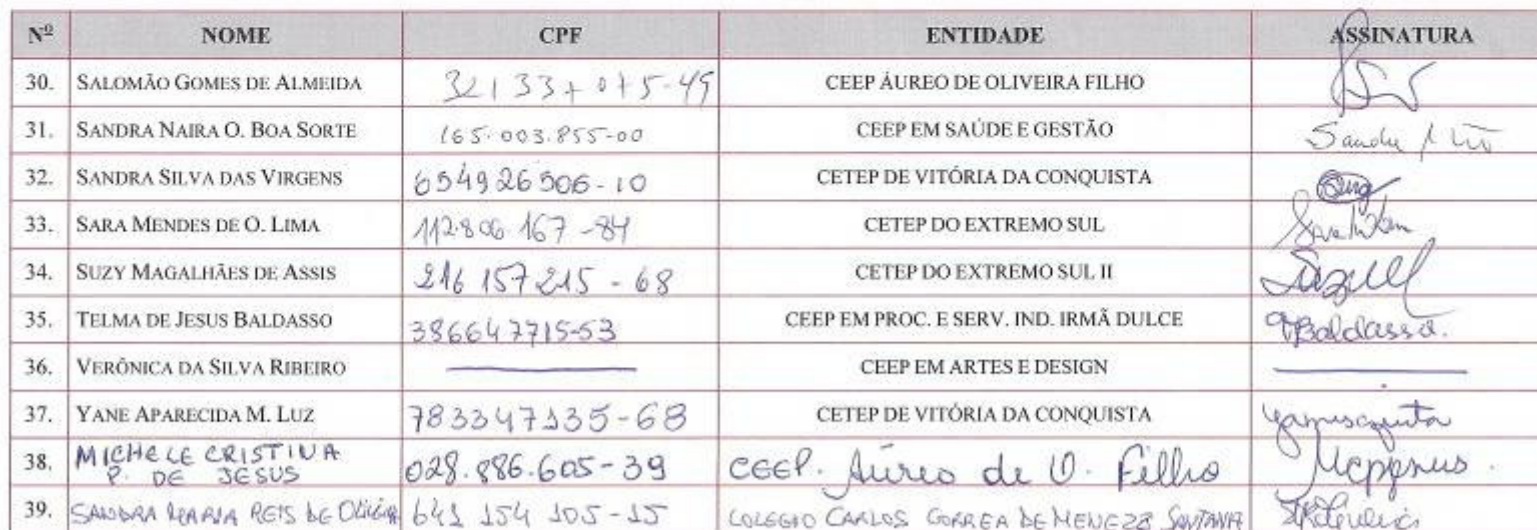 Nº NOME CPF ENTIDADE ASSINATURA
30. SALOMÃO GOMES DE ALMEIDA 321337075-49 CEEP ÁUREO DE OLIVEIRA FILHO
31. SANDRA NAIRA O. BOA SORTE 165.003.855-00 CEEP EM SAÚDE E GESTÃO Sandra
32. SANDRA SILVA DAS VIRGENS 654926506-10 CETEP DE VITÓRIA DA CONQUISTA
33. SARA MENDES DE O. LIMA 112.806.167-84 CETEP DO EXTREMO SUL
34. SUZY MAGALHÃES DE ASSIS 216 157 215 - 68 CETEP DO EXTREMO SUL II
35. TELMA DE JESUS BALDASSO 386647715-53 CEEP EM PROC. E SERV. IND. IRMÃ DULCE TBaldasso.
36. VERÔNICA DA SILVA RIBEIRO CEEP EM ARTES E DESIGN
37. YANE APARECIDA M. LUZ 783347135-68 CETEP DE VITÓRIA DA CONQUISTA
38. MICHELE CRISTINA P. DE JESUS 028.886.605-39 CEEP. Aúreo de O. Filho
39. SANDRA MARIA REIS DE Oliveira 641 154 105-15 COLEGIO CARLOS CORREA DE MENEZES SANTANA